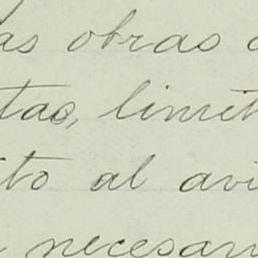 as obras
tas, limit
ito al avi
necesari